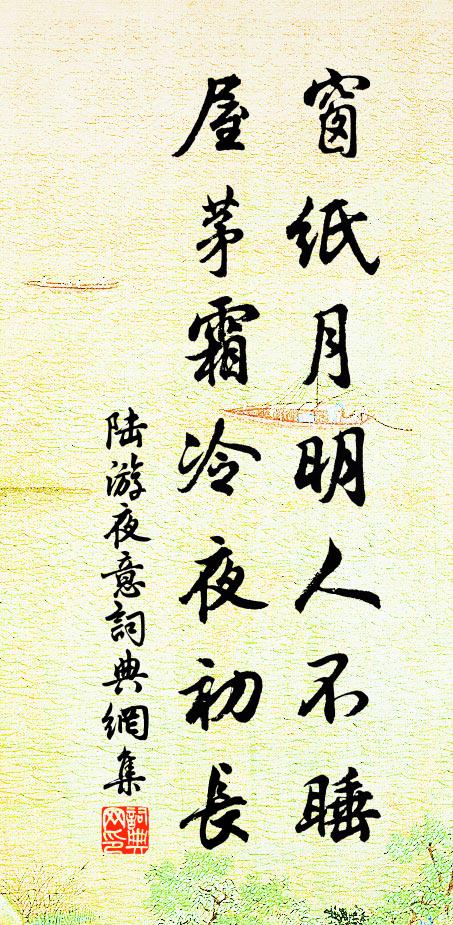 窗紙月明人不睡
屋茅霜冷夜初長
陆游夜意詞典網集
詞典網印